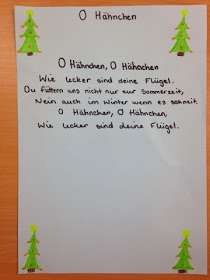 O Hähnchen
O Hähnchen, O Hähnchen
Wie lecker sind deine Flügel.
Du füttern uns nicht nur zur Sommerzeit,
Nein auch im Winter wenn es schneit.
O Hähnchen, O Hähnchen,
Wie lecker sind deine Flügel.